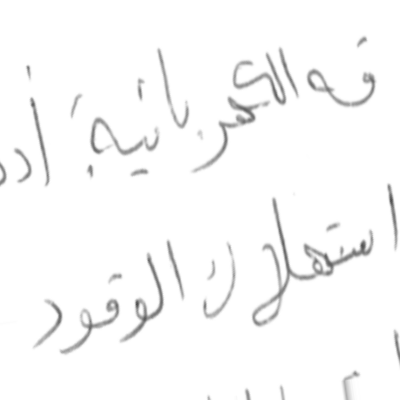 الكهربائية أد
استهلاك الوقود